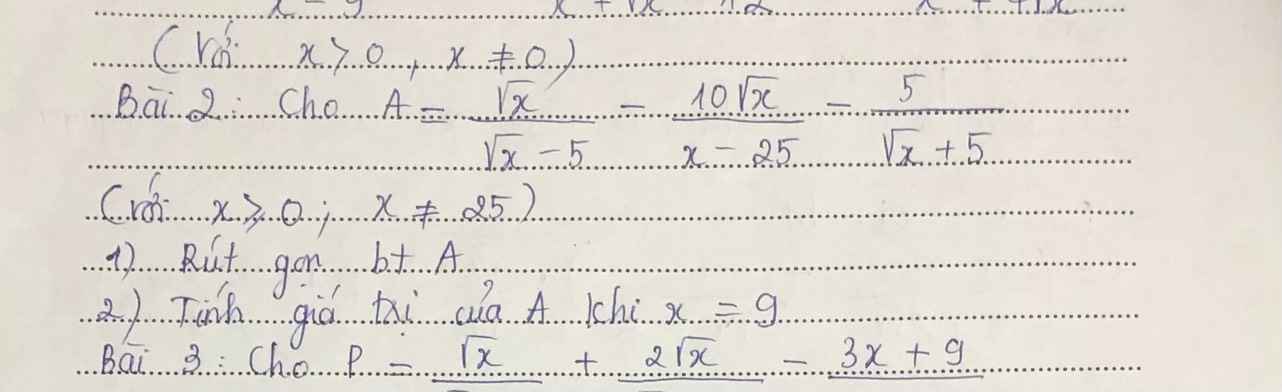 (Với x > 0, x ≠ 0)
Bài 2: Cho A = √x/(√x - 5) - 10√x/(x - 25) - 5/(√x + 5)
(với x ≥ 0; x ≠ 25)
1) Rút gọn bt A
2) Tính giá trị của A khi x = 9
Bài 3: Cho P = √x + 2√x - 3x + 9